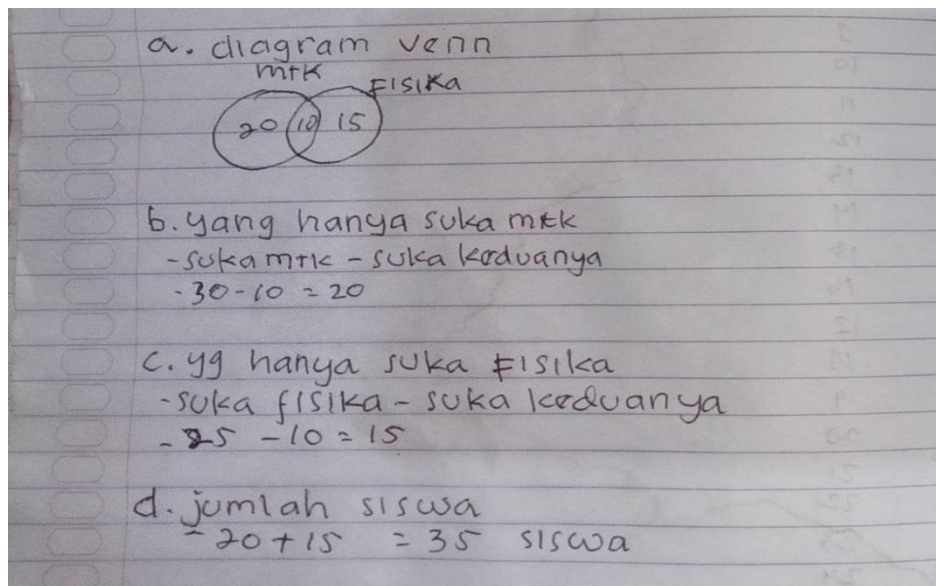 a. diagram venn
mtk
Fisika
20 10 15
b. yang hanya suka mtk
- suka mtk - suka keduanya
- 30 - 10 = 20
c. yg hanya suka Fisika
- suka fisika - suka keduanya
- 25 - 10 = 15
d. jumlah siswa
- 20 + 15 = 35 siswa